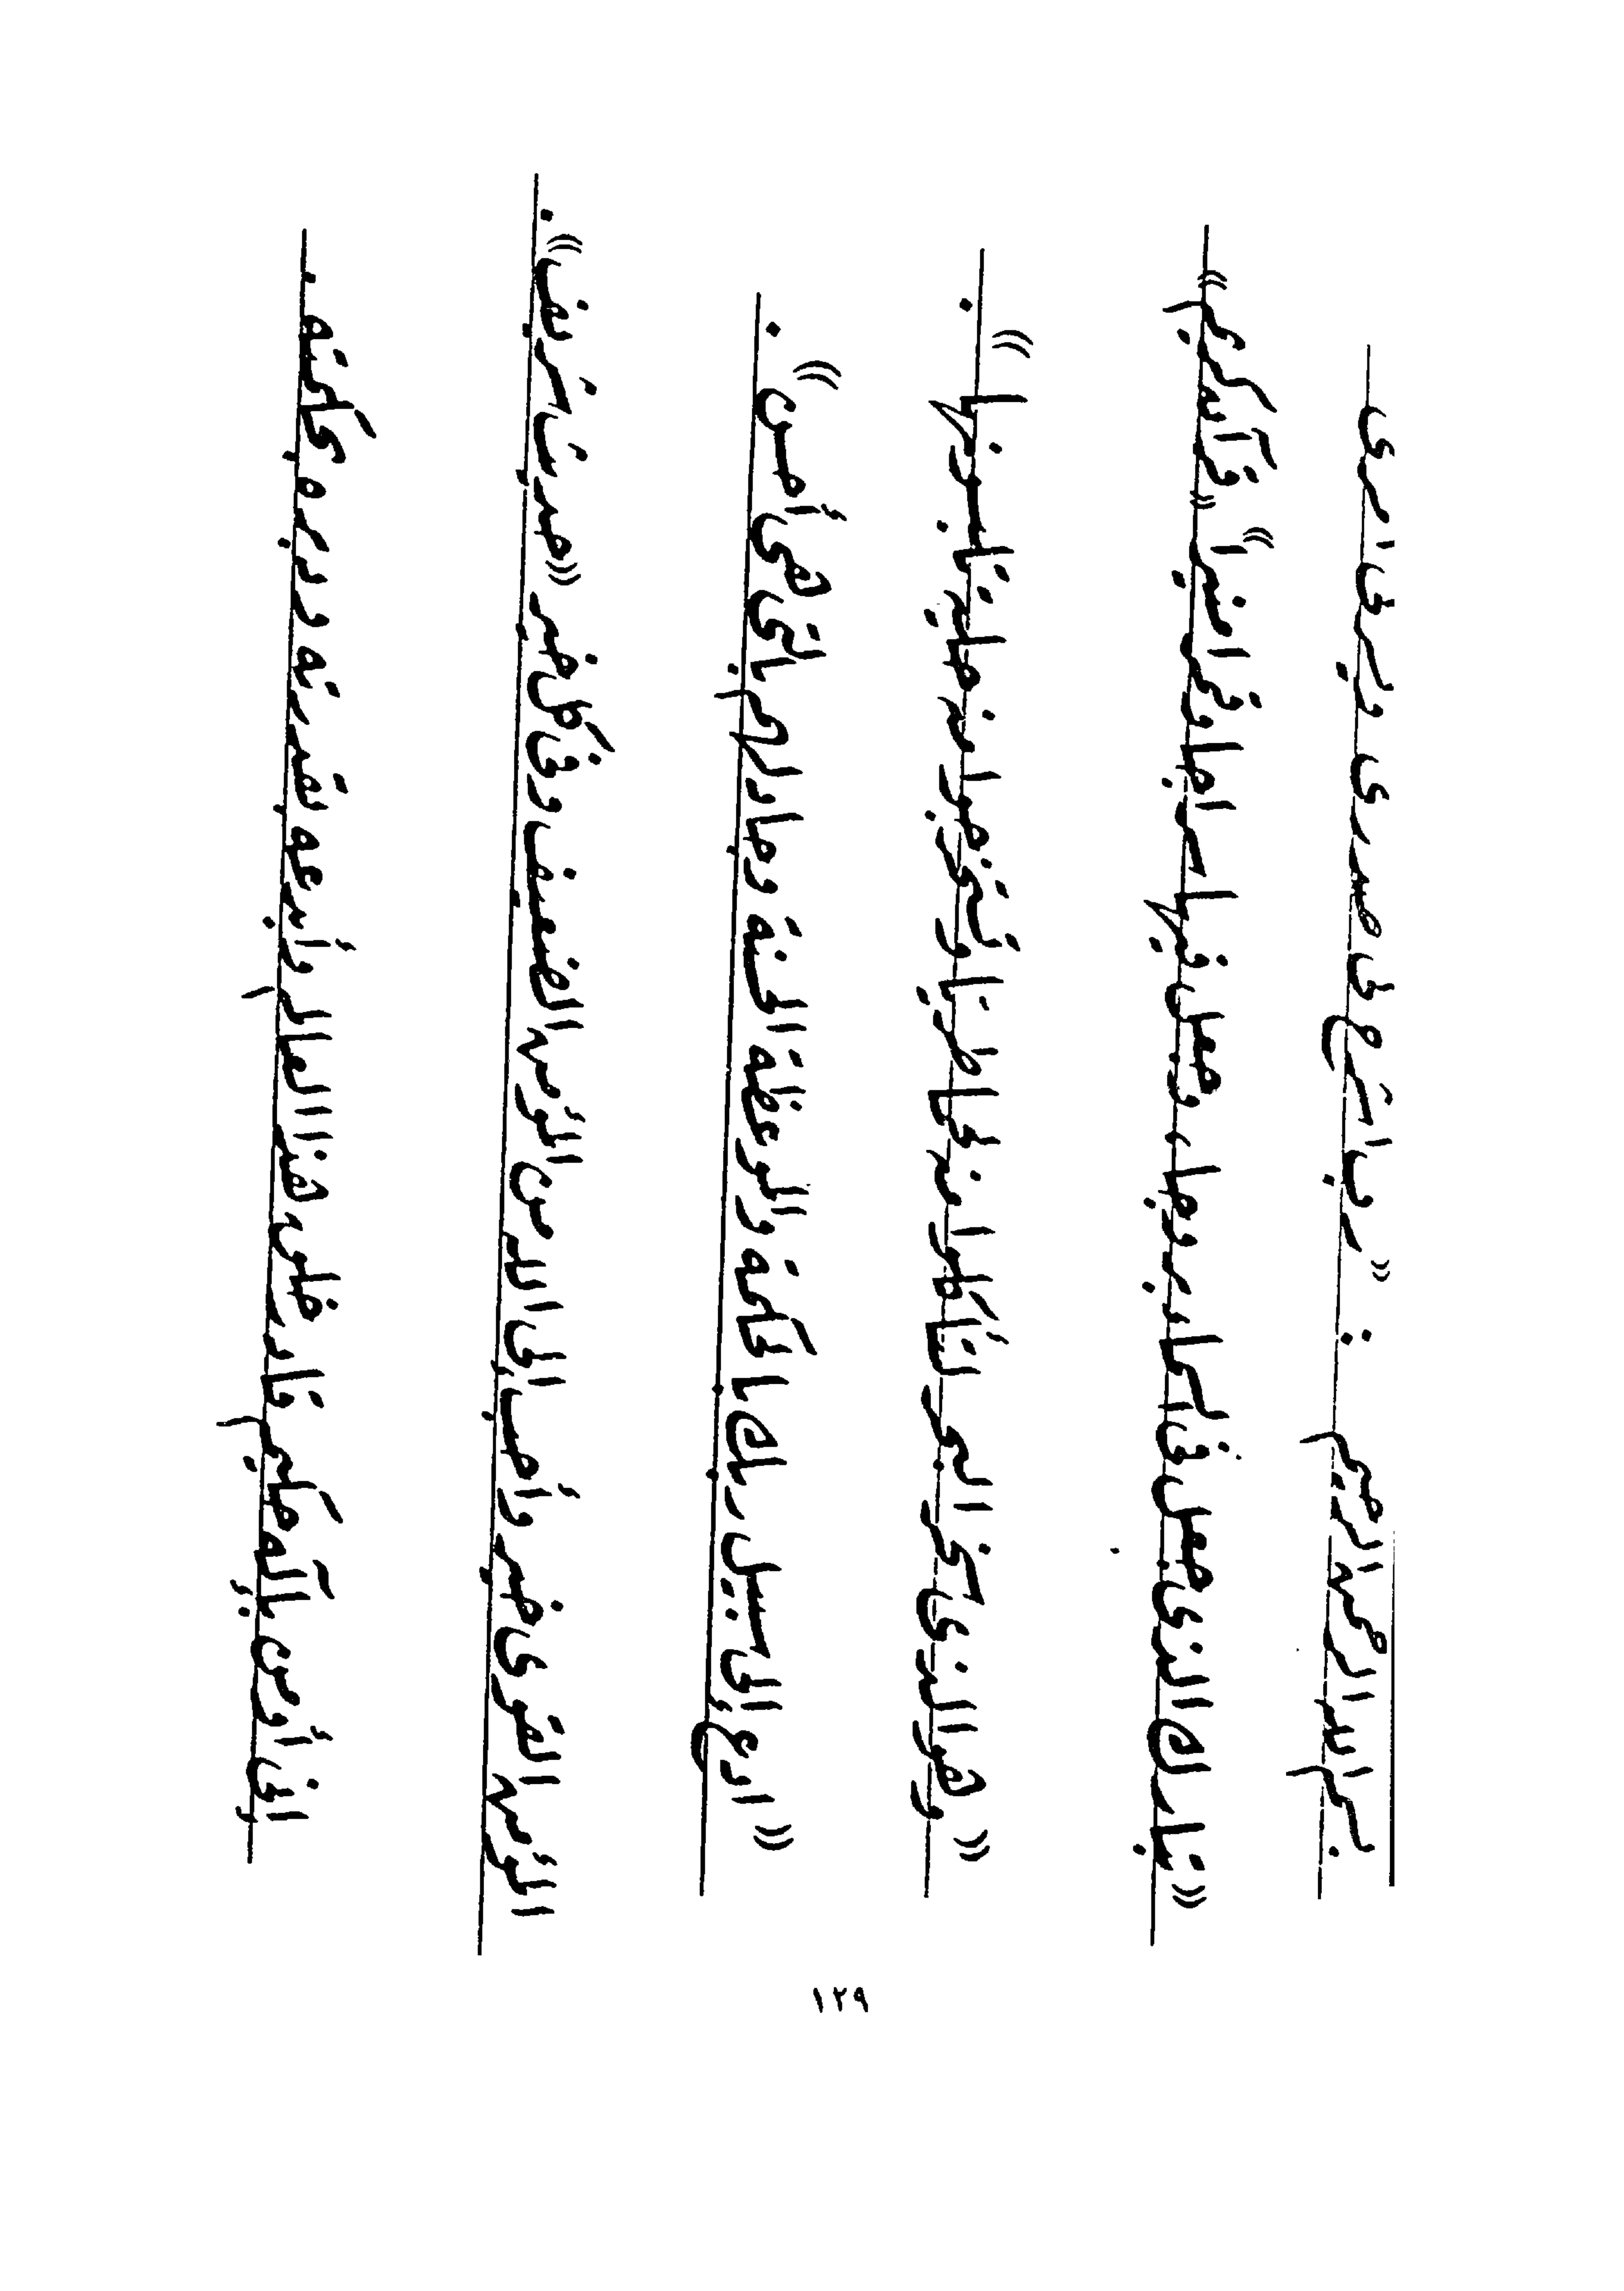 بسم الله الرحمن الرحيم : « رب اشرح لى صدرى ويسر لى امرى
« تبارك الذى جعل فى السماء بروجا ، وجعل فيها سراجا وقمرا منيرا » « قرآن كريم »
« وهو الذى سخر البحر لتأكلوا منه لحما طريا وتستخرجوا منه حلية تلبسونها » .
« ادع إلى سبيل ربك بالحكمة والموعظة الحسنة وجادلهم بالتى هى أحسن » .
المؤمن القوى خير وأحب إلى الله من المؤمن الضعيف وفى كل خير « حديث شريف » .
إنى أومن بإله حكيم قادر خلق هذا العالم وأبدعه بقدرته ودبره بحكمته .
١٢٩